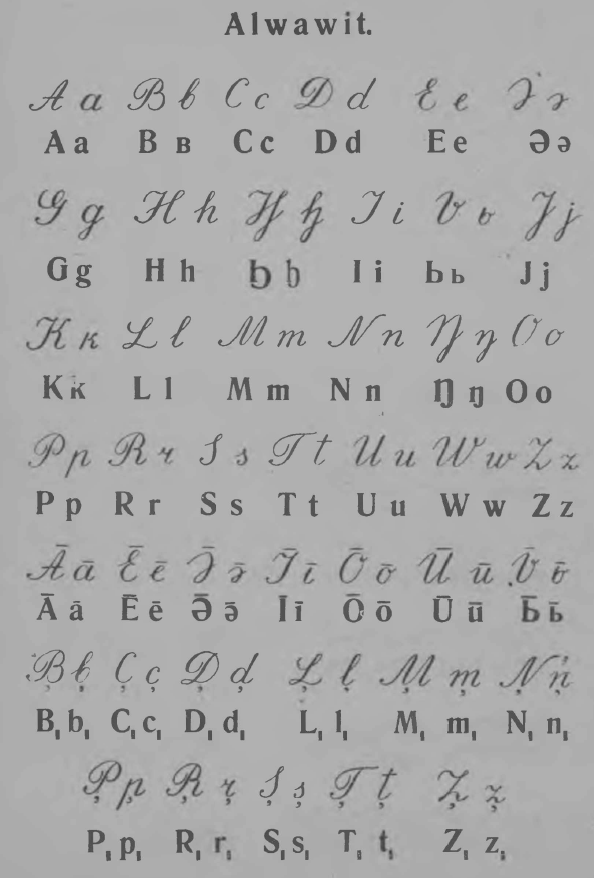 Alwawit.
A a B b C c D d E e Ə ə
A a B ʙ C c D d E e Ə ə
G g H h Ꜧ ꜧ I i Ь ь J j
G g H h Ꜧ ꜧ I i Ь ь J j
K ĸ L l M m N n Ŋ ŋ O o
K ĸ L l M m N n Ŋ ŋ O o
P p R r S s T t U u W w Z z
P p R r S s T t U u W w Z z
Ā ā Ē ē Ə̄ ə̄ Ī ī Ō ō Ū ū Ь̄ ь̄
Ā ā Ē ē Ə̄ ə̄ Ī ī Ō ō Ū ū Ь̄ ь̄
B̦ b̦ C̦ c̦ D̦ d̦ L̦ l̦ M̦ m̦ N̦ n̦
B̦ b̦ C̦ c̦ D̦ d̦ L̦ l̦ M̦ m̦ N̦ n̦
P̦ p̦ R̦ r̦ Ș ș Ț ț Z̦ z̦
P̦ p̦ R̦ r̦ Ș ș Ț ț Z̦ z̦